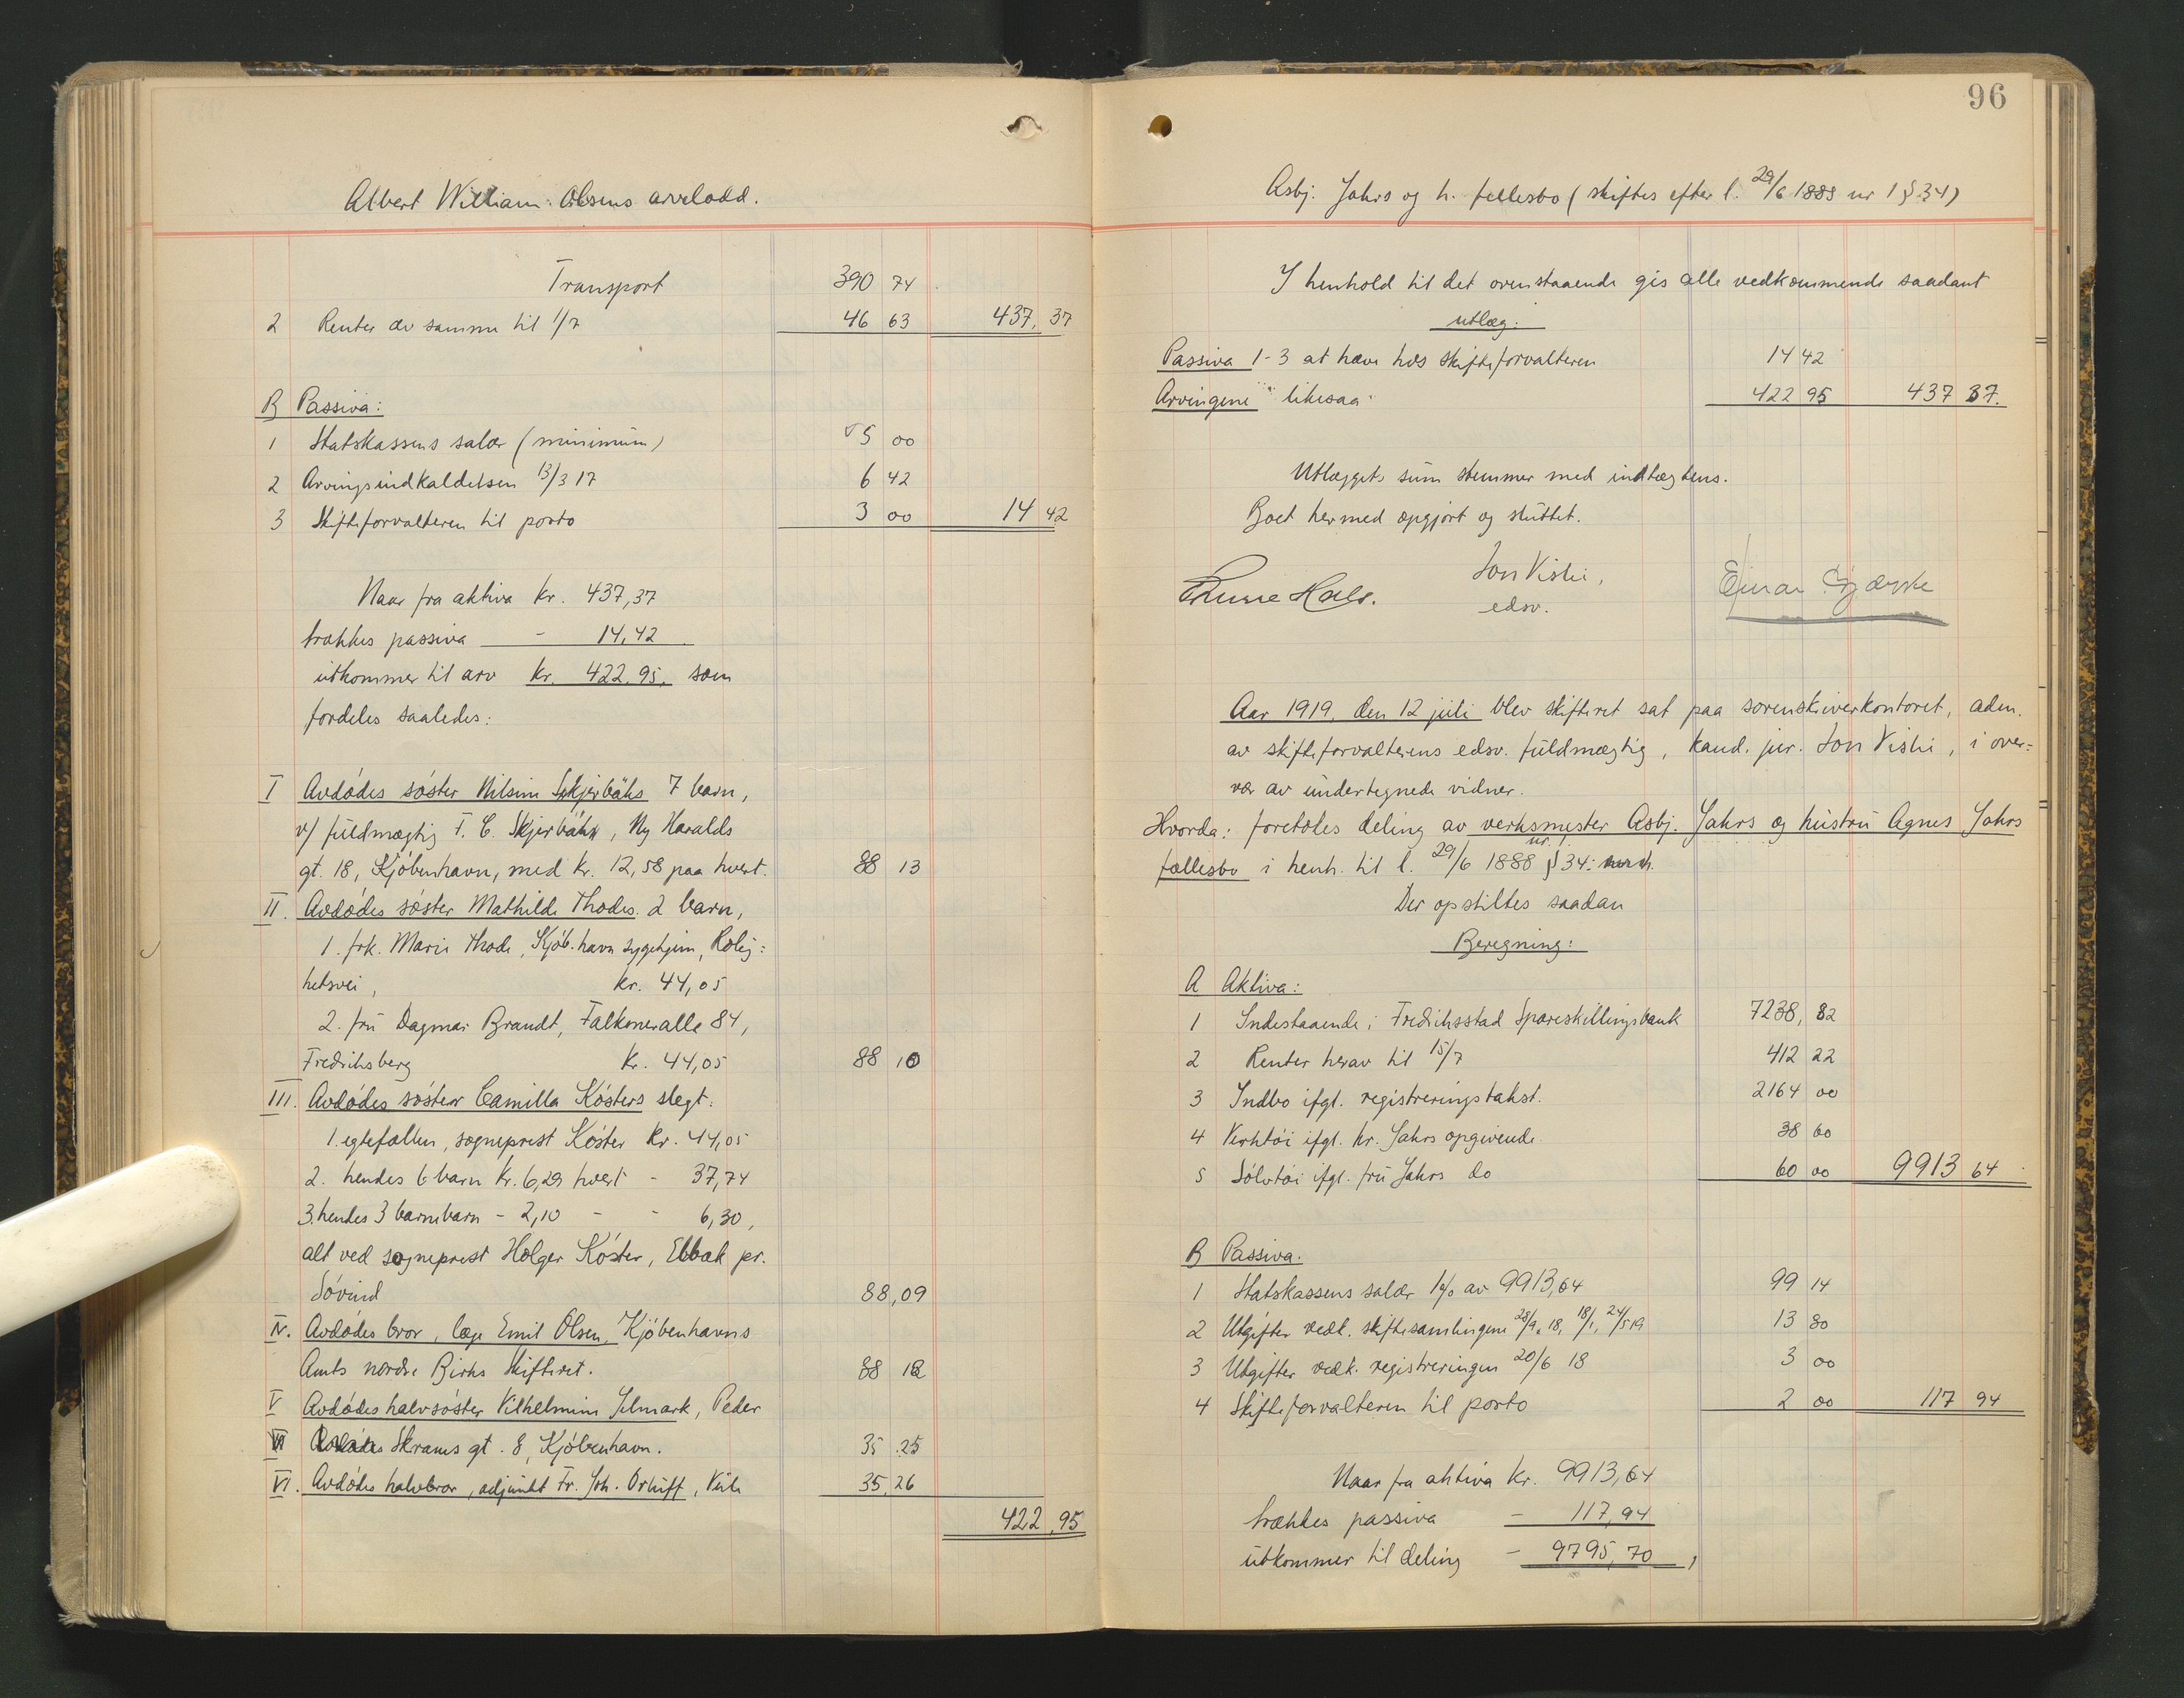 Albert William Olsens arvelodd.
Transport 390 74
2 Renter av samme til 1/7 46 63 437,37
B Passiva:
1 Statskassens salær (minimum) 5 00
2 Arvingsindkaldelsen 13/3 17 6 42
3 Skifteforvalteren til porto 3 00 14 42
Naar fra aktiva kr. 437,37
trækkes passiva - 14,42
utkommer til arv kr. 422,95, som
fordeles saaledes:
I Avdødes søster Nilsine Skjerbæks 7 barn,
v/ fuldmægtig T. C. Skjerbæk, Ny Haralds
gt. 18, Kjøbenhavn, med kr. 12,58 paa hvert. 88 13
II. Avdødes søster Mathilde Thodes 2 barn,
1. frk. Marie Thode, Kjøb.havn sygehjem, Rolig:
hetsvei, kr. 44,05
2. fru Dagmar Brandt, Falkoneralle 84,
Fredriksberg kr. 44,05 88 10
III. Avdødes søster Camilla Kösters slegt:
1. egtefællen, sogneprest Köster kr. 44,05
2. hendes 6 barn kr. 6,29 hvert - 37,74
3. hendes 3 barnebarn - 2,10 - - 6,30,
alt ved sogneprest Holger Köster, Ebbæk pr.
Søvind 88,09
IV. Avdødes bror, læge Emil Olsen, Kjøbenhavns
Amts nordre Birks skifteret. 88 12
V Avdødes halvsøster Vilhelmine Jelmark, Peder
Skrams gt. 8, Kjøbenhavn. 35 25
VI. Avdødes halvbror, adjunkt Fr. Joh. Ortuff, Veile 35,26
422,95
96
Asbj. Jahrs og h. fellesbo (skiftes efter l. 29/6 1888 nr 1 § 34)
I henhold til det ovenstaaende gis alle vedkommende saadant
utlæg:
Passiva 1-3 at hæve hos skifteforvalteren 14 42
Arvingene likesaa 422 95 437 37.
Utlæggets sum stemmer med indtægtens.
Boet hermed opgjort og sluttet.
Jon Vislie,
edsv.
Einar
Aar 1919, den 12 juli blev skifteret sat paa sorenskriverkontoret, adm.
av skifteforvalterens edsv. fuldmægtig, kand. jur. Jon Vislie, i over-
vær av undertegnede vidner.
Hvorda: foretoles deling av verksmester Asbj. Jahrs og hustru Agnes Jahrs
fællesbo i henh. til l. 29/6 1888 nr. 1 § 34:
Der opstiltes saadan
Beregning:
A Aktiva:
1 Indestaaende i Fredriksstad Spareskillingsbank 7238,82
2 Renter herav til 15/7 412 22
3 Indbo ifgl. registreringstakst. 2164 00
4 Verktøi ifgl. hr. Jahrs opgivende 38 60
5 Sølvtøi ifgl. fru Jahrs do 60 00 9913 64
B Passiva.
1 Statskassens salær 1% av 9913,64 99 14
2 Utgifter vedk. skiftesamlingene 28/9 18, 18/1, 24/5 19 13 80
3 Utgifter vedk. registreringen 20/6 18 3 00
4 Skifteforvalteren til porto 2 00 117 94
Naar fra aktiva kr. 9913,64
trækkes passiva - 117,94
utkommer til deling - 9795,70,